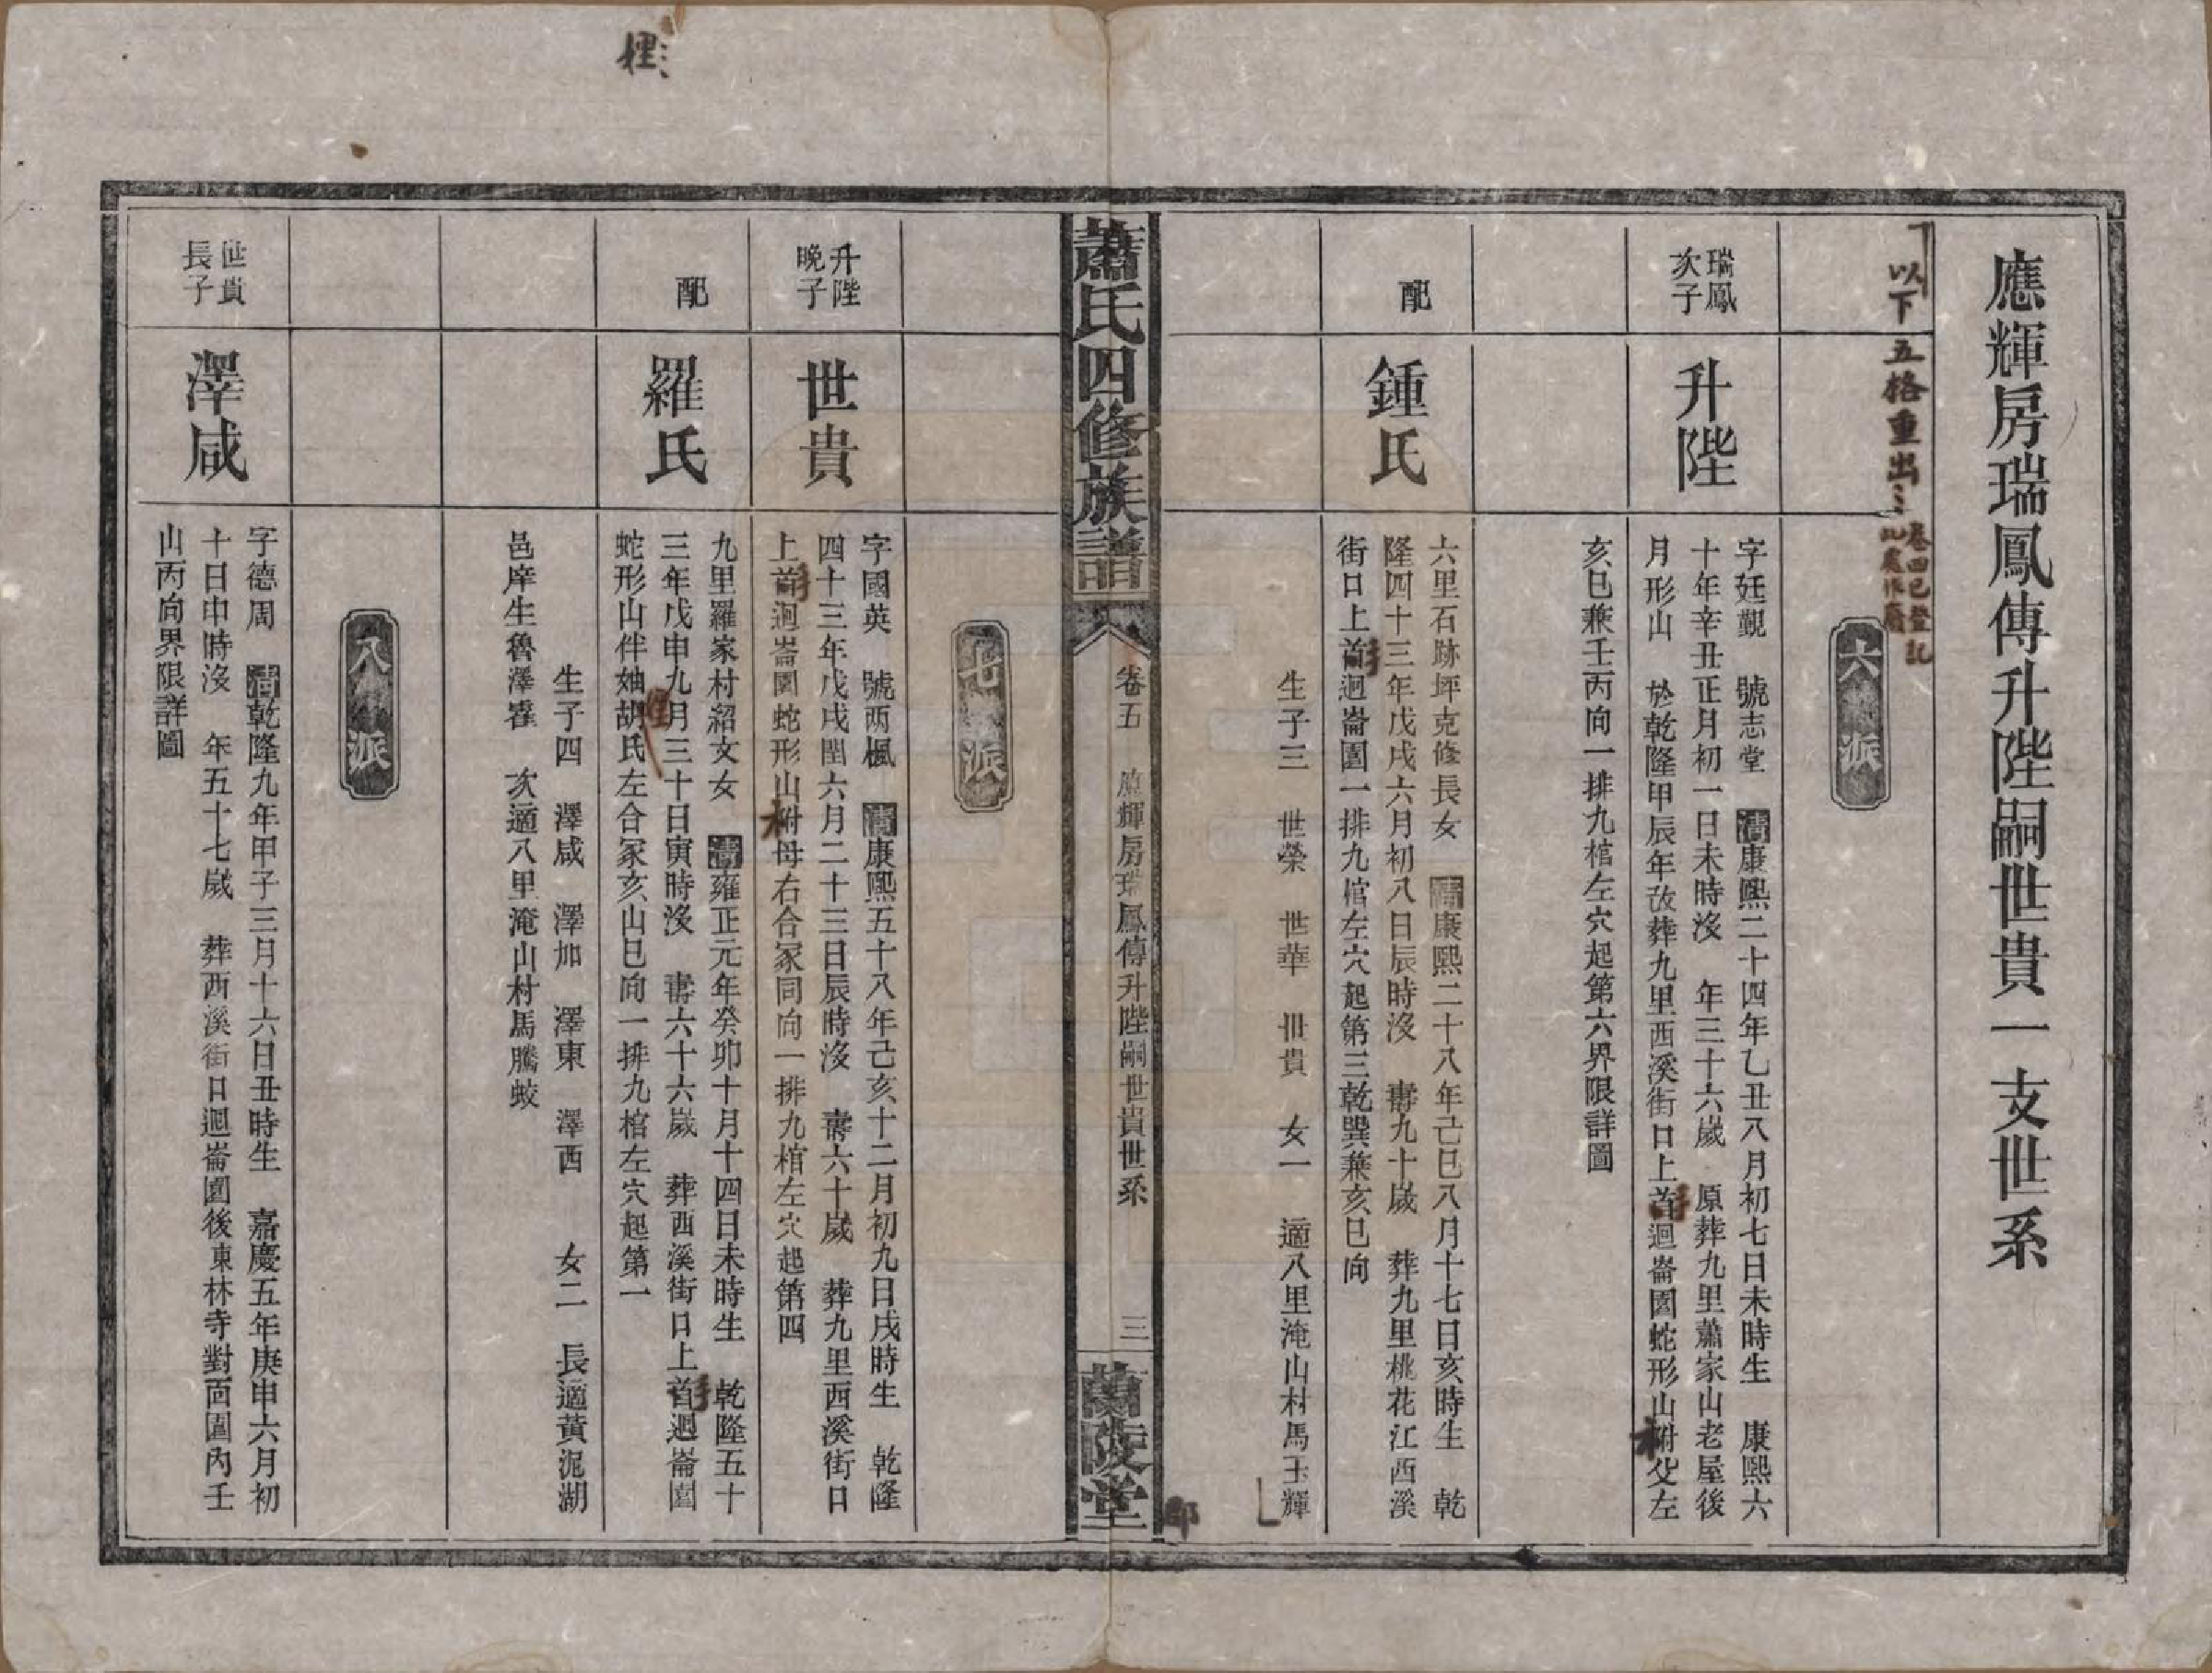 應輝房瑞鳳傳升陛嗣世貴一支世系
以下五格重出
卷四已登記
此處作廢
六派
瑞鳳
次子
升陛
字廷觀　號志堂　清康熙二十四年乙丑八月初七日未時生　康熙六
十年辛丑正月初一日未時沒　年三十六歲　原葬九里蕭家山老屋後
月形山　於乾隆甲辰年改葬九里西溪街口上首迴崙園蛇形山附父左
亥巳兼壬丙向一排九棺左穴起第六界限詳圖
配
鍾氏
六里石跡坪克修長女　清康熙二十八年己巳八月十七日亥時生　乾
隆四十三年戊戌六月初八日辰時沒　壽九十歲　葬九里桃花江西溪
街口上首迴崙園一排九棺左穴起第三乾巽兼亥巳向
生子三　世榮　世華　世貴　女一　適八里淹山村馬玉輝
蕭氏四修族譜
卷五　應輝房瑞鳳傳升陛嗣世貴世系
三
蘭陵堂
七派
升陛
晚子
世貴
字國英　號西楓　清康熙五十八年己亥十二月初九日戌時生　乾隆
四十三年戊戌閏六月二十三日辰時沒　壽六十歲　葬九里西溪街口
上首迴崙園蛇形山附母右合冢同向一排九棺左穴起第四
配
羅氏
九里羅家村紹文女　清雍正元年癸卯十月十四日未時生　乾隆五十
三年戊申九月三十日寅時沒　壽六十六歲　葬西溪街口上首迴崙園
蛇形山伴妯胡氏左合冢亥山巳向一排九棺左穴起第一
生子四　澤咸　澤加　澤東　澤西　女二　長適黃泥湖
邑庠生魯澤霍　次適八里淹山村馬騰蛟
八派
世貴
長子
澤咸
字德周　清乾隆九年甲子三月十六日丑時生　嘉慶五年庚申六月初
十日申時沒　年五十七歲　葬西溪街口迴崙園後東林寺對面園內壬
山丙向界限詳圖